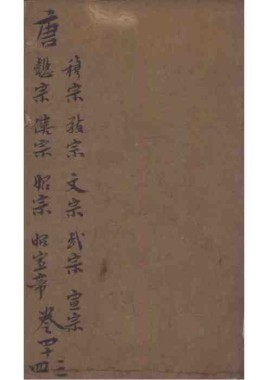 唐
穆宗 敬宗 文宗 武宗 宣宗
懿宗 僖宗 昭宗 昭宣帝 卷四十四